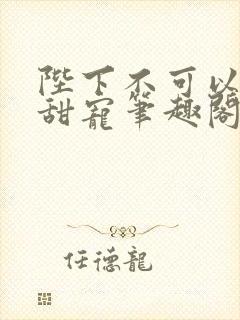 陛下不可以
甜寵筆趣閣
任德龍